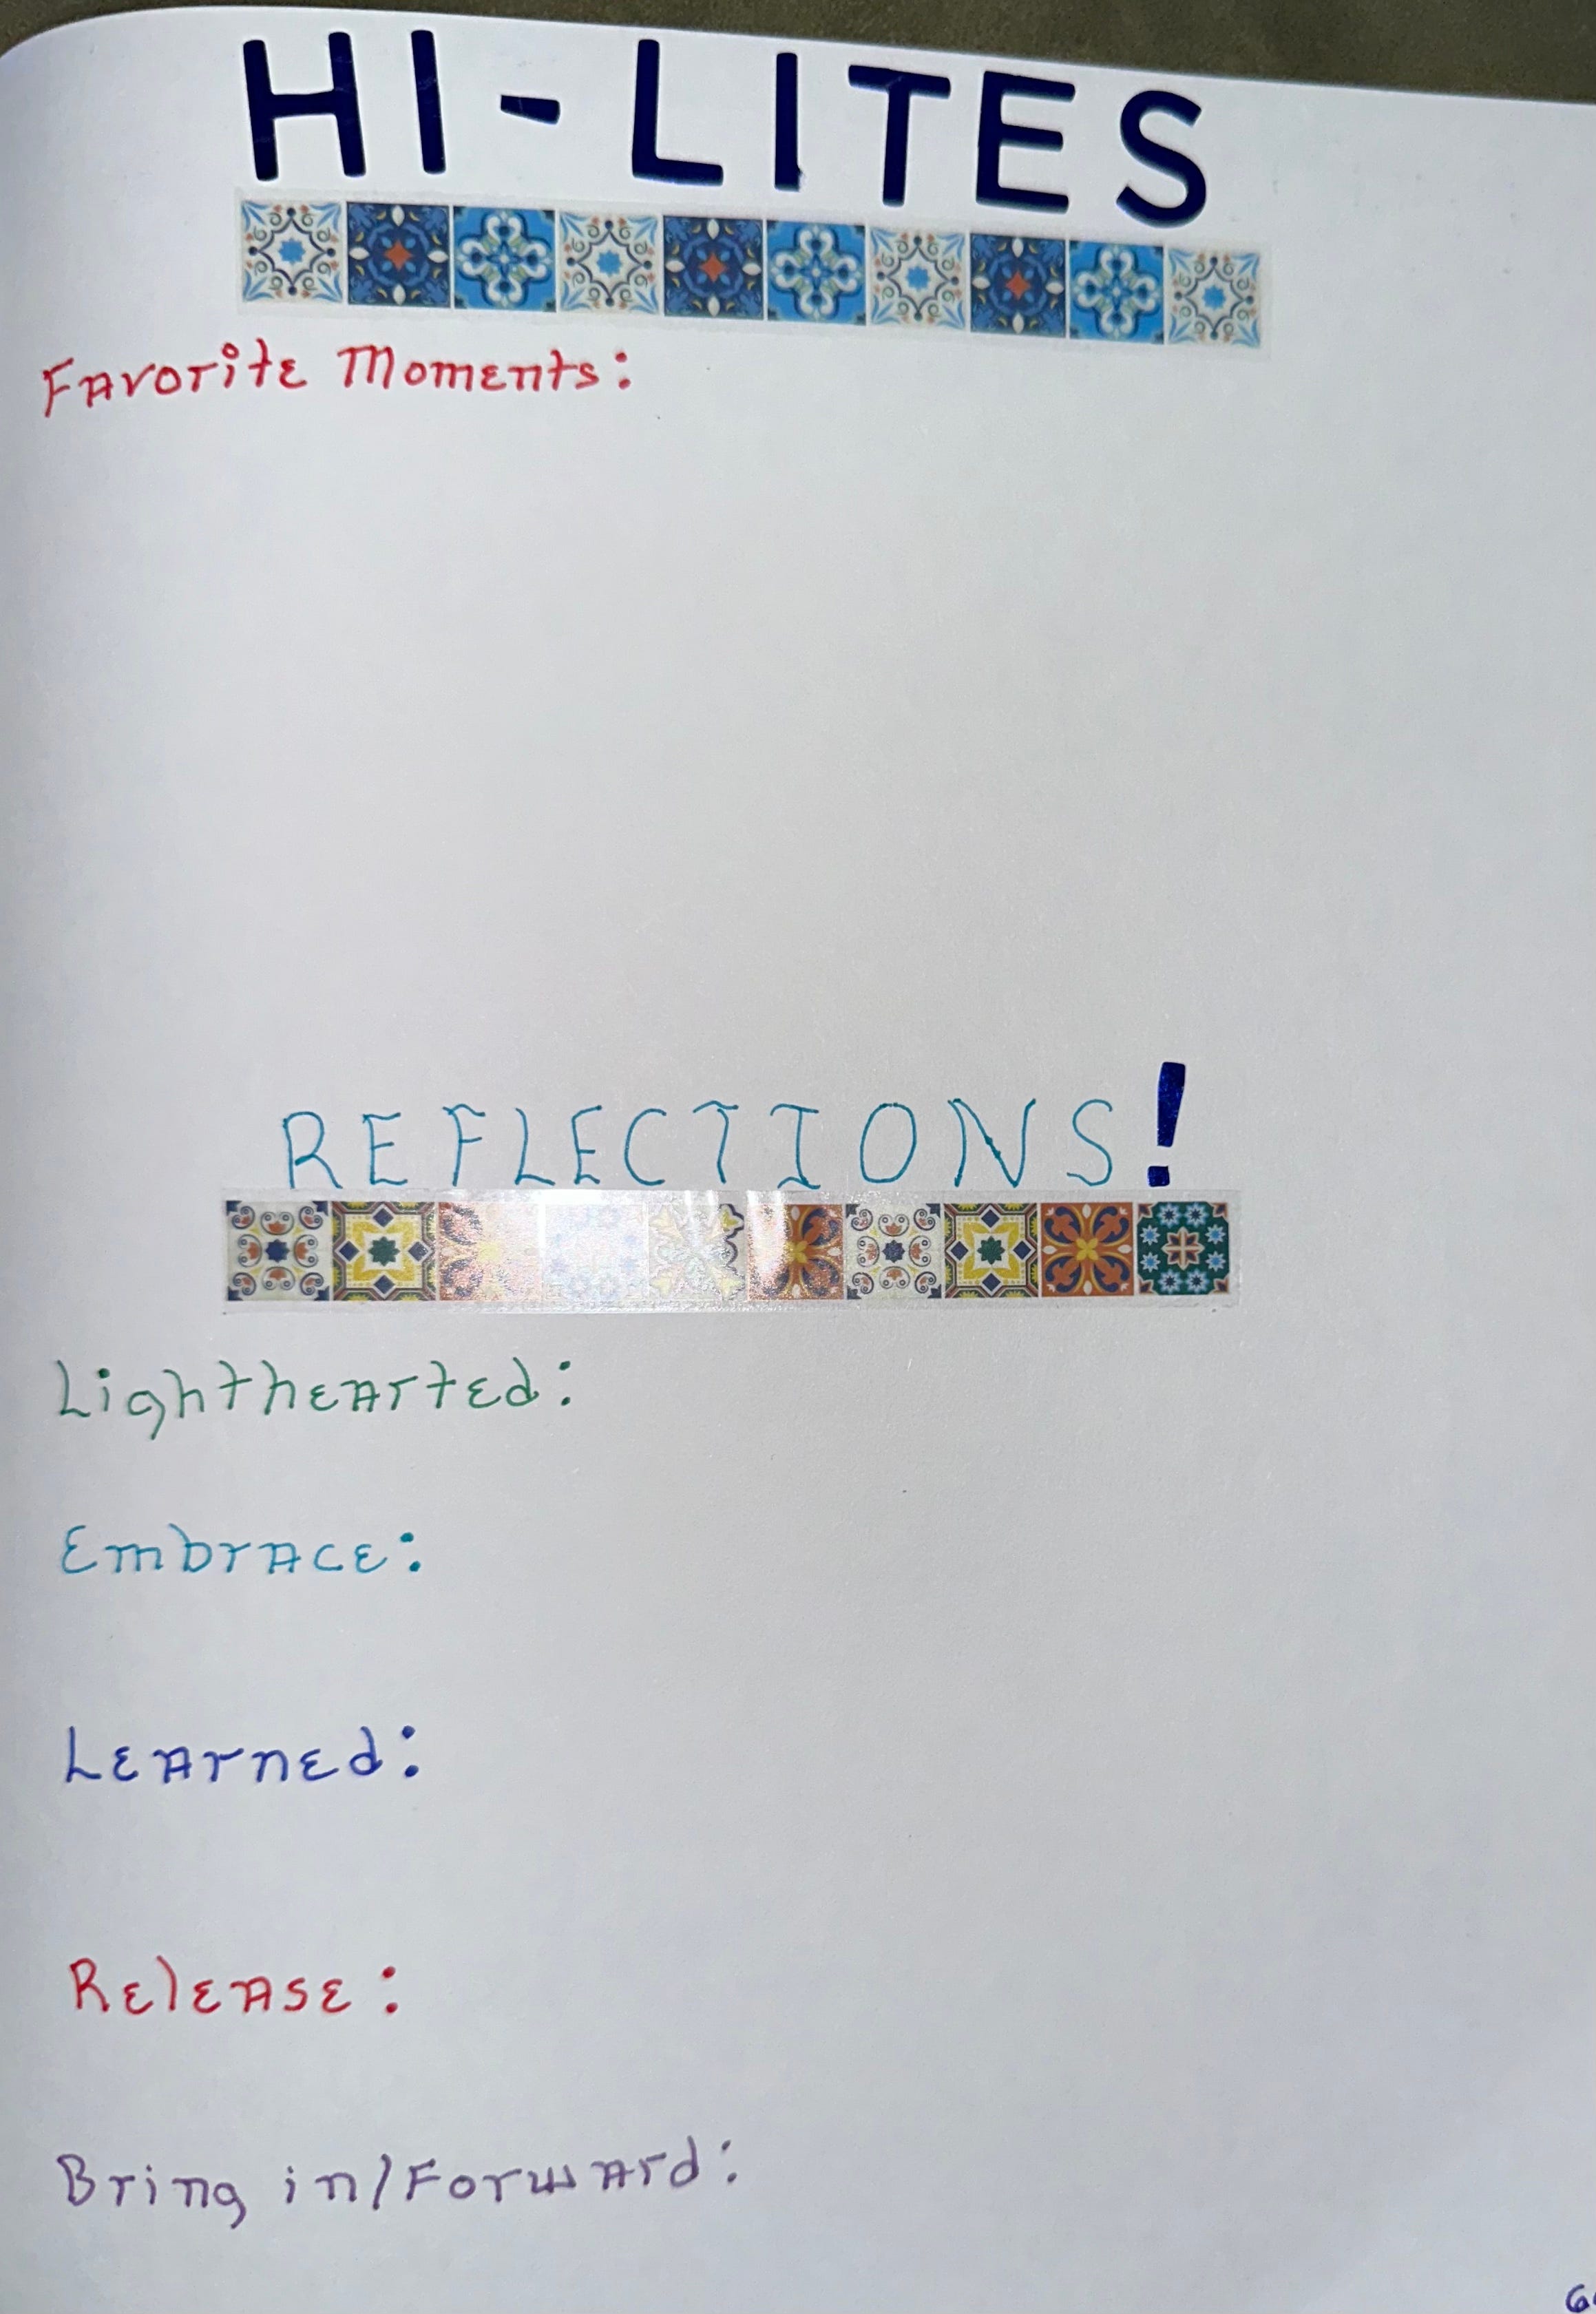 HI-LITES
Favorite Moments:
REFLECTIONS!
Lighthearted:
Embrace:
Learned:
Release:
Bring in/Forward: